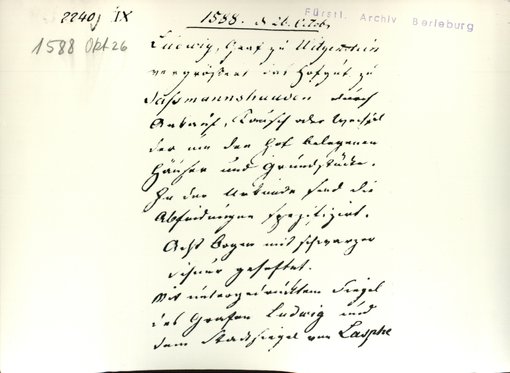 2240g IX
1588. d 26. Octob.
Fürstl. Archiv Berleburg
1588 Okt 26
Ludwig, Graf zu Witgenstein
vergrößert das Hofgut zu
Saßmannshausen durch
Ankauf, Tausch oder Wechsel
der um den Hof belegenen
Häuser und Grundstücke.
In der Urkunde sind die
Abfindungen spezifizirt.
Acht Bogen mit schwarzer
Schnur geheftet.
Mit untergedrücktem Siegel
des Grafen Ludwig und
dem Stadtsiegel von Laasphe